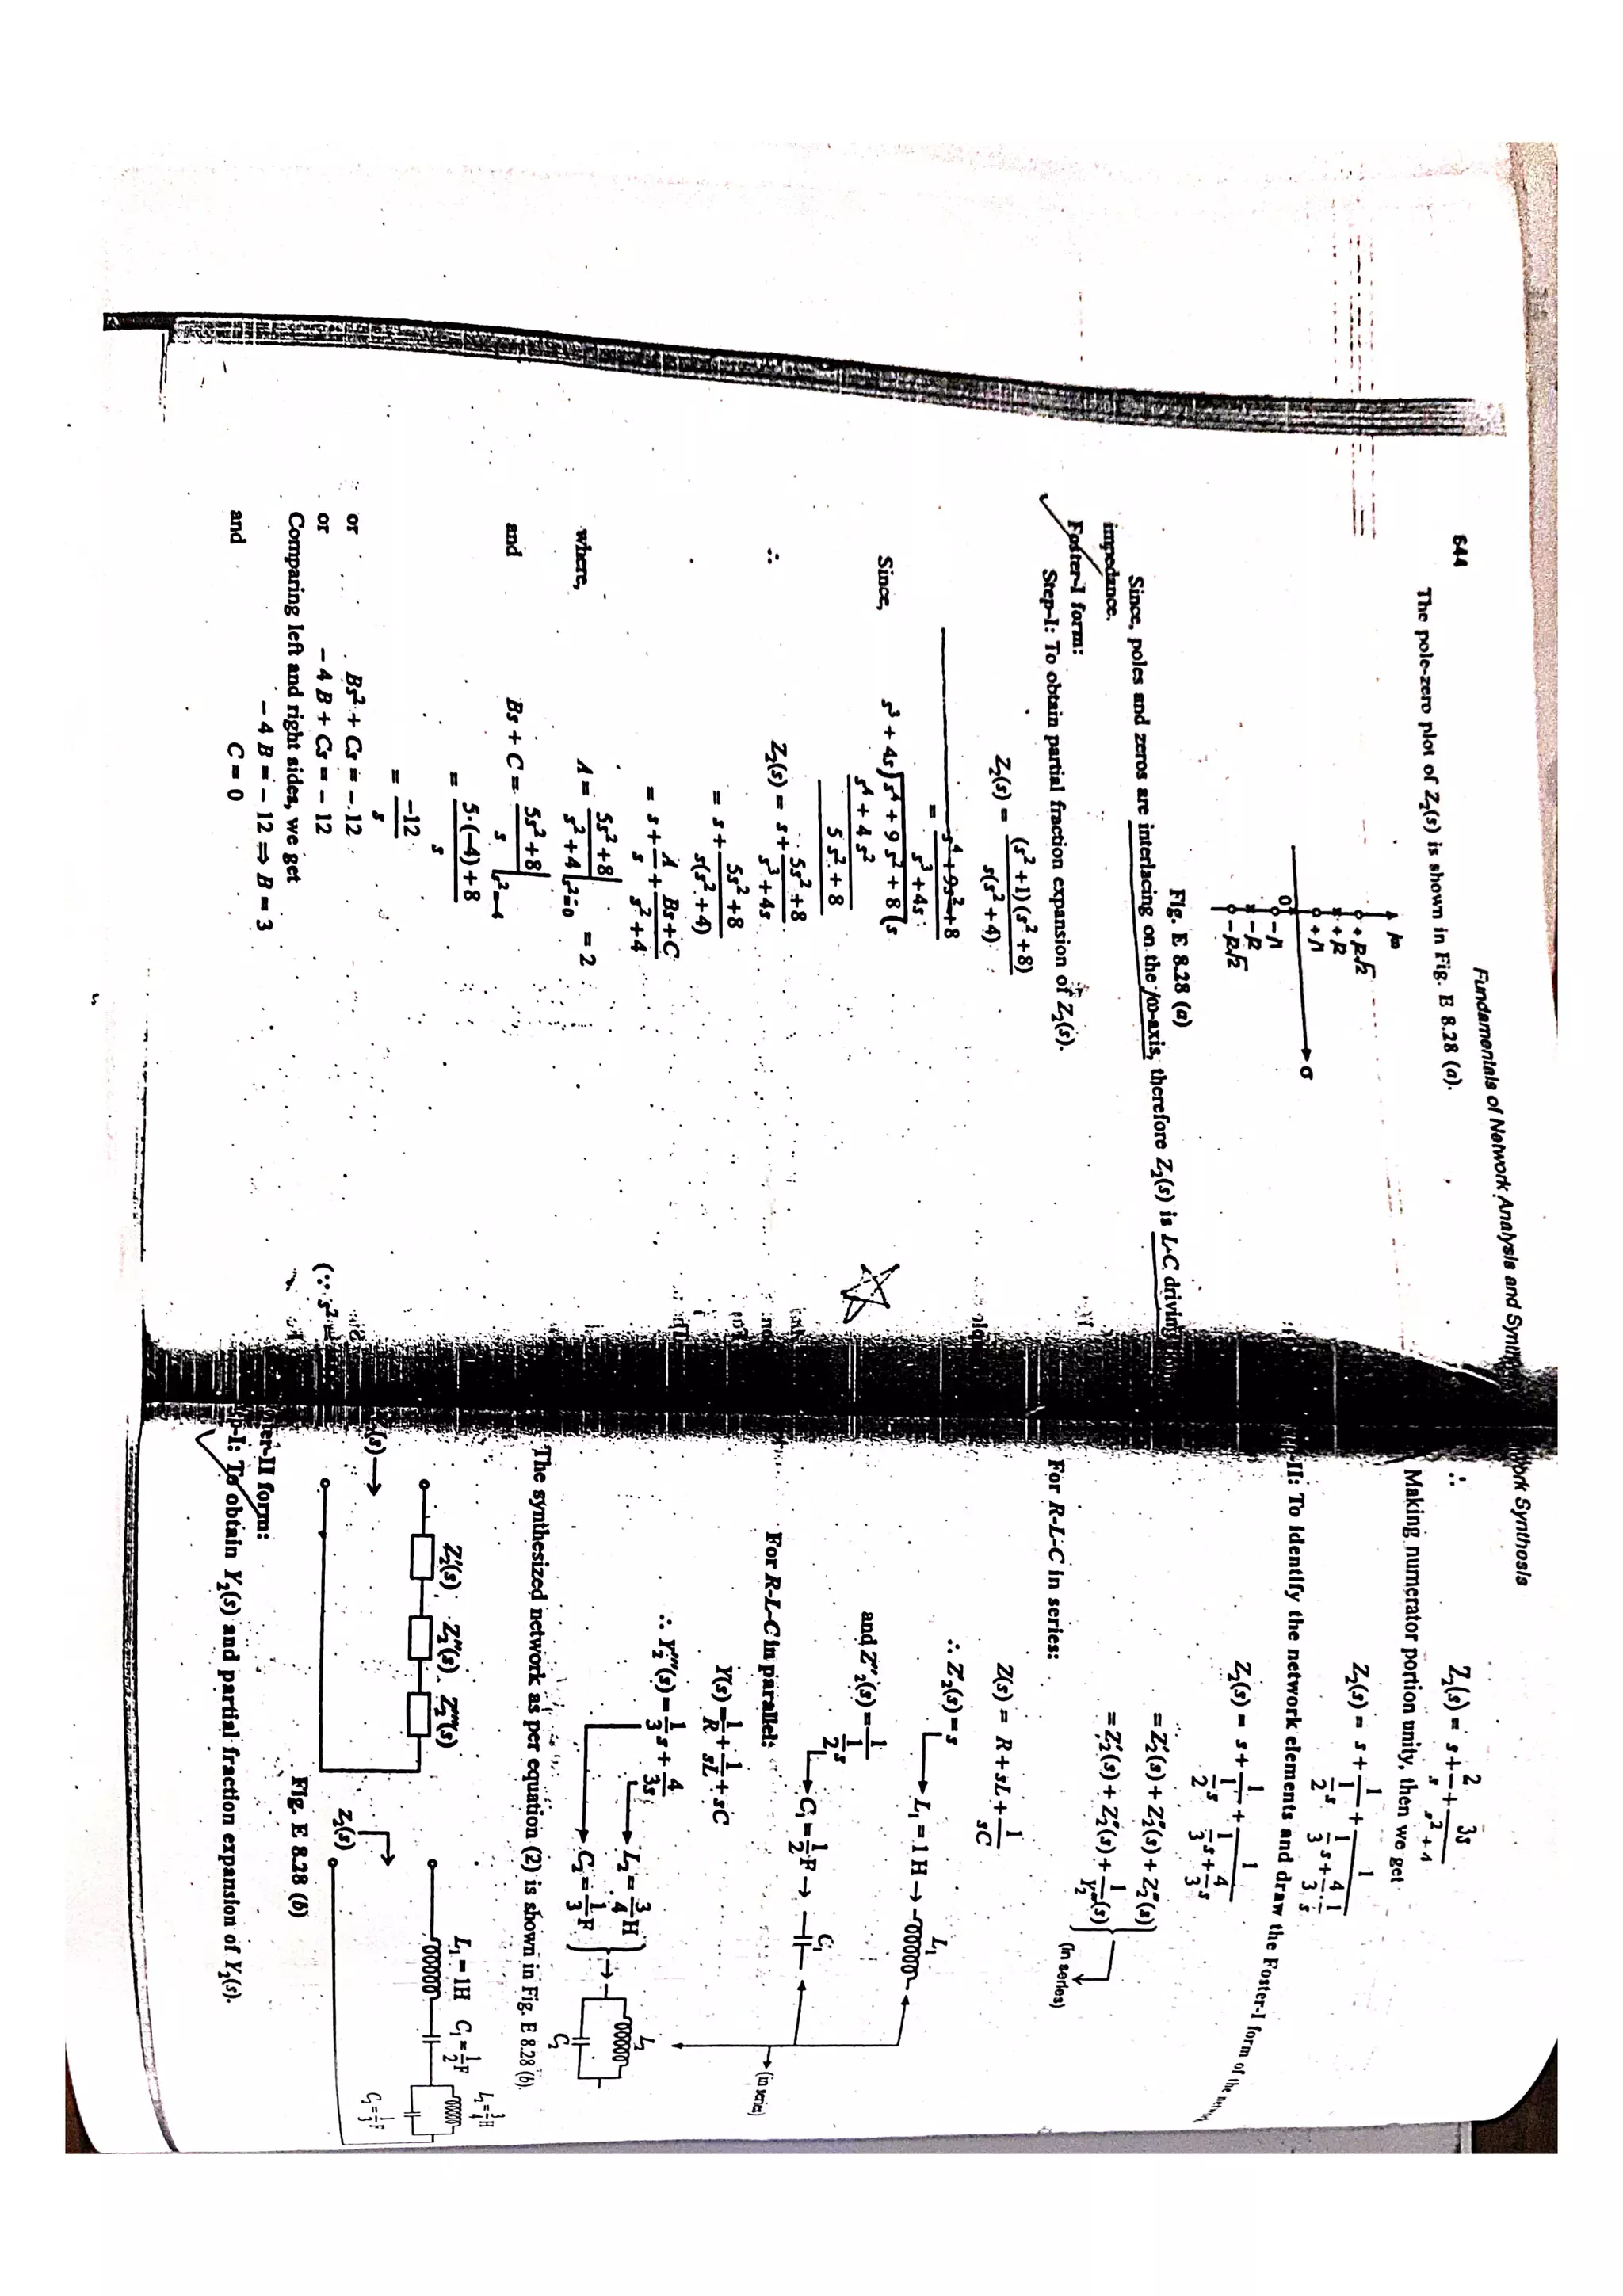 644
Fundamentals of Network Analysis and
The pole-zero plot of Z₂(s) is shown in Fig. E 8.28 (a).
jω
+j2√2
+j2
+j1
0
σ
-j1
-j2
-j2√2
Fig. E 8.28 (a)
Since, poles and zeros are interlacing on the jω-axis, therefore Z₂(s) is L-C driving
impedance.
Foster-I form:
Step-I: To obtain partial fraction expansion of Z₂(s).
Z₂(s) = (s² +1)(s² +8) / s(s² +4)
= s⁴ +9s² +8 / s³ +4s
Since, s³ + 4s) s⁴ + 9 s² + 8 (s
s⁴ + 4 s²
5 s² + 8
∴ Z₂(s) = s + 5s² +8 / s³ +4s
= s + 5s² +8 / s(s² +4)
= s + A / s + Bs+C / s² +4
where, A = 5s² +8 / s² +4 | s²=0 = 2
and Bs + C = 5s² +8 / s | s²=-4
= 5·(-4)+8 / s
= -12 / s
or Bs² + Cs = -12
or - 4 B + Cs = - 12 (∵ s² =
Comparing left and right sides, we get
- 4 B = - 12 ⇒ B = 3
and C = 0
Synthesis
∴ Z₂(s) = s + 2 / s + 3s / s² +4
Making numerator portion unity, then we get
Z₂(s) = s + 1 / (1/2 s) + 1 / (1/3 s + 4/3 · 1/s)
-II: To identify the network elements and draw the Foster-I form of the
Z₂(s) = s + 1 / (1/2 s) + 1 / (1/3 s + 4/3 s)
= Z₂'(s) + Z₂''(s) + Z₂'''(s)
= Z₂'(s) + Z₂''(s) + 1 / Y₂'''(s) (in series)
For R-L-C in series:
Z(s) = R + sL + 1 / sC
∴ Z₂'(s) = s
L₁ = 1 H → L₁
and Z''₂(s) = 1 / (1/2 s)
C₁ = 1/2 F → C₁
(in series)
For R-L-C in parallel:
Y(s) = 1/R + 1/sL + sC
∴ Y₂'''(s) = 1/3 s + 4/3s
L₂ = 3/4 H
C₂ = 1/3 F
L₂
C₂
The synthesized network as per equation (2) is shown in Fig. E 8.28 (b).
Z₂'(s) Z₂''(s) Z₂'''(s)
(s) →
Z₂(s)
L₁ = 1H C₁ = 1/2 F
L₂ = 3/4 H
C₂ = 1/3 F
Fig. E 8.28 (b)
-II form:
-I: To obtain Y₂(s) and partial fraction expansion of Y₂(s).